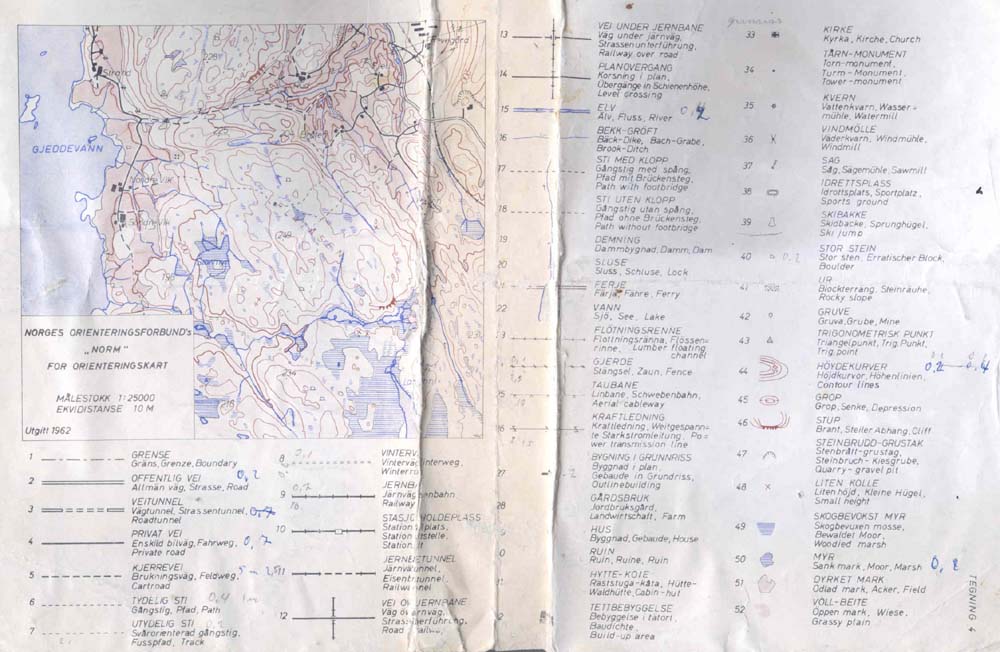 GJEDDEVANN
Strand
Nordre Vik
228
225
249
234
NORGES ORIENTERINGSFORBUND's
„NORM"
FOR ORIENTERINGSKART
MÅLESTOKK 1:25000
EKVIDISTANSE 10 M
Utgitt 1962
1 GRENSE
Gräns, Grenze, Boundary
2 OFFENTLIG VEI 0,2
Allmän väg, Strasse, Road
3 VEITUNNEL
Vägtunnel, Strassentunnel,
Roadtunnel
4 PRIVAT VEI
Enskild bilväg, Fahrweg, 0,2
Private road
5 KJERREVEI
Brukningsväg, Feldweg,
Cartroad
6 TYDELIG STI 0,4
Gångstig, Pfad, Path
7 UTYDELIG STI
Svårorienterad gångstig,
Fusspfad, Track
8 VINTERV
9 JERNBA
Railway
10 STASJ HOLDEPLASS
Station
11 JERNBETUNNEL
12
13 VEI UNDER JERNBANE
Väg under järnväg,
Strassenunterführung,
Railway over road
14 PLANOVERGANG
Korsning i plan,
Übergänge in Schienenhöhe,
Level crossing
15 ELV 0,2
Älv, Fluss, River
16 BEKK-GRÖFT
Bäck-Dike, Bach-Grabe,
Brook-Ditch
17 STI MED KLOPP
Gångstig med spång,
Pfad mit Brückensteg,
Path with footbridge
18 STI UTEN KLOPP
Gångstig utan spång,
Pfad ohne Brückensteg,
Path without footbridge
19 DEMNING
Dammbygnad, Damm, Dam
20 SLUSE
Sluss, Schluse, Lock
FERJE
Färja, Fähre, Ferry
VANN
Sjö, See, Lake
FLÖTNINGSRENNE
Flottningsränna, Flössen-
rinne, Lumber floating
channel
GJERDE
Stängsel, Zaun, Fence
TAUBANE
Linbane, Schwebenbahn,
Aerial cableway
KRAFTLEDNING
Kraftledning, Weitgespann-
te Starkstromleitung, Po-
wer transmission line
27 BYGNING I GRUNNRISS
Byggnad i plan,
Gebaude in Grundriss,
Outlinebuilding
28 GÅRDSBRUK
Jordbruksgård,
Landwirtschaft, Farm
HUS
Byggnad, Gebaude, House
RUIN
Ruin, Ruine, Ruin
HYTTE-KOIE
Raststuga-kåta, Hütte-
Waldhütte, Cabin-hut
TETTBEBYGGELSE
Bebyggelse i tätort,
Baudichte,
Build-up area
33 KIRKE
Kyrka, Kirche, Church
34 TÅRN-MONUMENT
Torn-monument,
Turm-Monument,
Tower-monument
35 KVERN
Vattenkvarn, Wasser-
mühle, Watermill
36 VINDMÖLLE
Väderkvarn, Windmühle,
Windmill
37 SAG
Såg, Sägemühle, Sawmill
38 IDRETTSPLASS
Idrottsplats, Sportplatz,
Sports ground
39 SKIBAKKE
Skidbacke, Sprunghügel,
Ski jump
40 0,2 STOR STEIN
Stor sten, Erratischer Block,
Boulder
41 UR
Blockterräng, Steinräuhe,
Rocky slope
42 GRUVE
Gruva, Grube, Mine
43 TRIGONOMETRISK PUNKT
Triangelpunkt, Trig. Punkt,
Trig. point
44 HÖYDEKURVER 0,2 - 0,4
Höjdkurvor, Höhenlinien,
Contour lines
45 GROP
Grop, Senke, Depression
46 STUP
Brant, Steiler Abhang, Cliff
47 STEINBRUDD-GRUSTAK
Stenbrått-grustag,
Steinbruch-Kiesgrube,
Quarry-gravel pit
48 LITEN KOLLE
Liten höjd, Kleine Hügel,
Small height
49 SKOGBEVOKST MYR
Skogbevuxen mosse,
Bewaldet Moor,
Woodied marsh
50 MYR
Sank mark, Moor, Marsh 0,2
51 DYRKET MARK
Odlad mark, Acker, Field
52 VOLL-BEITE
Öppen mark, Wiese,
Grassy plain
TEGNING 4